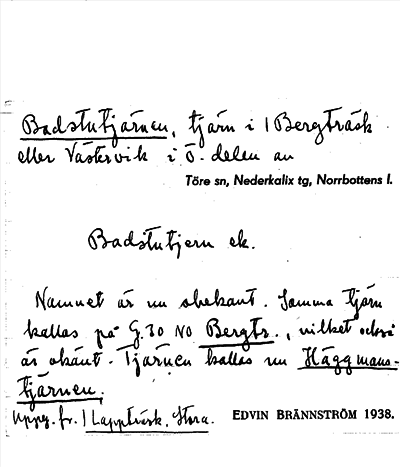 Badstutjärnen, tjärn i 1 Bergträsk
eller Västervik i ö. delen av
Töre sn, Nederkalix tg, Norrbottens l.
Badstutjern ek.
Namnet är nu obekant. Samma tjärn
kallas på G.30 NO Bergtr., vilket också
är okänt. Tjärnen kallas nu Häggmans-
tjärnen.
Uppg. fr. 1 Lappträsk, Stora.
EDVIN BRÄNNSTRÖM 1938.